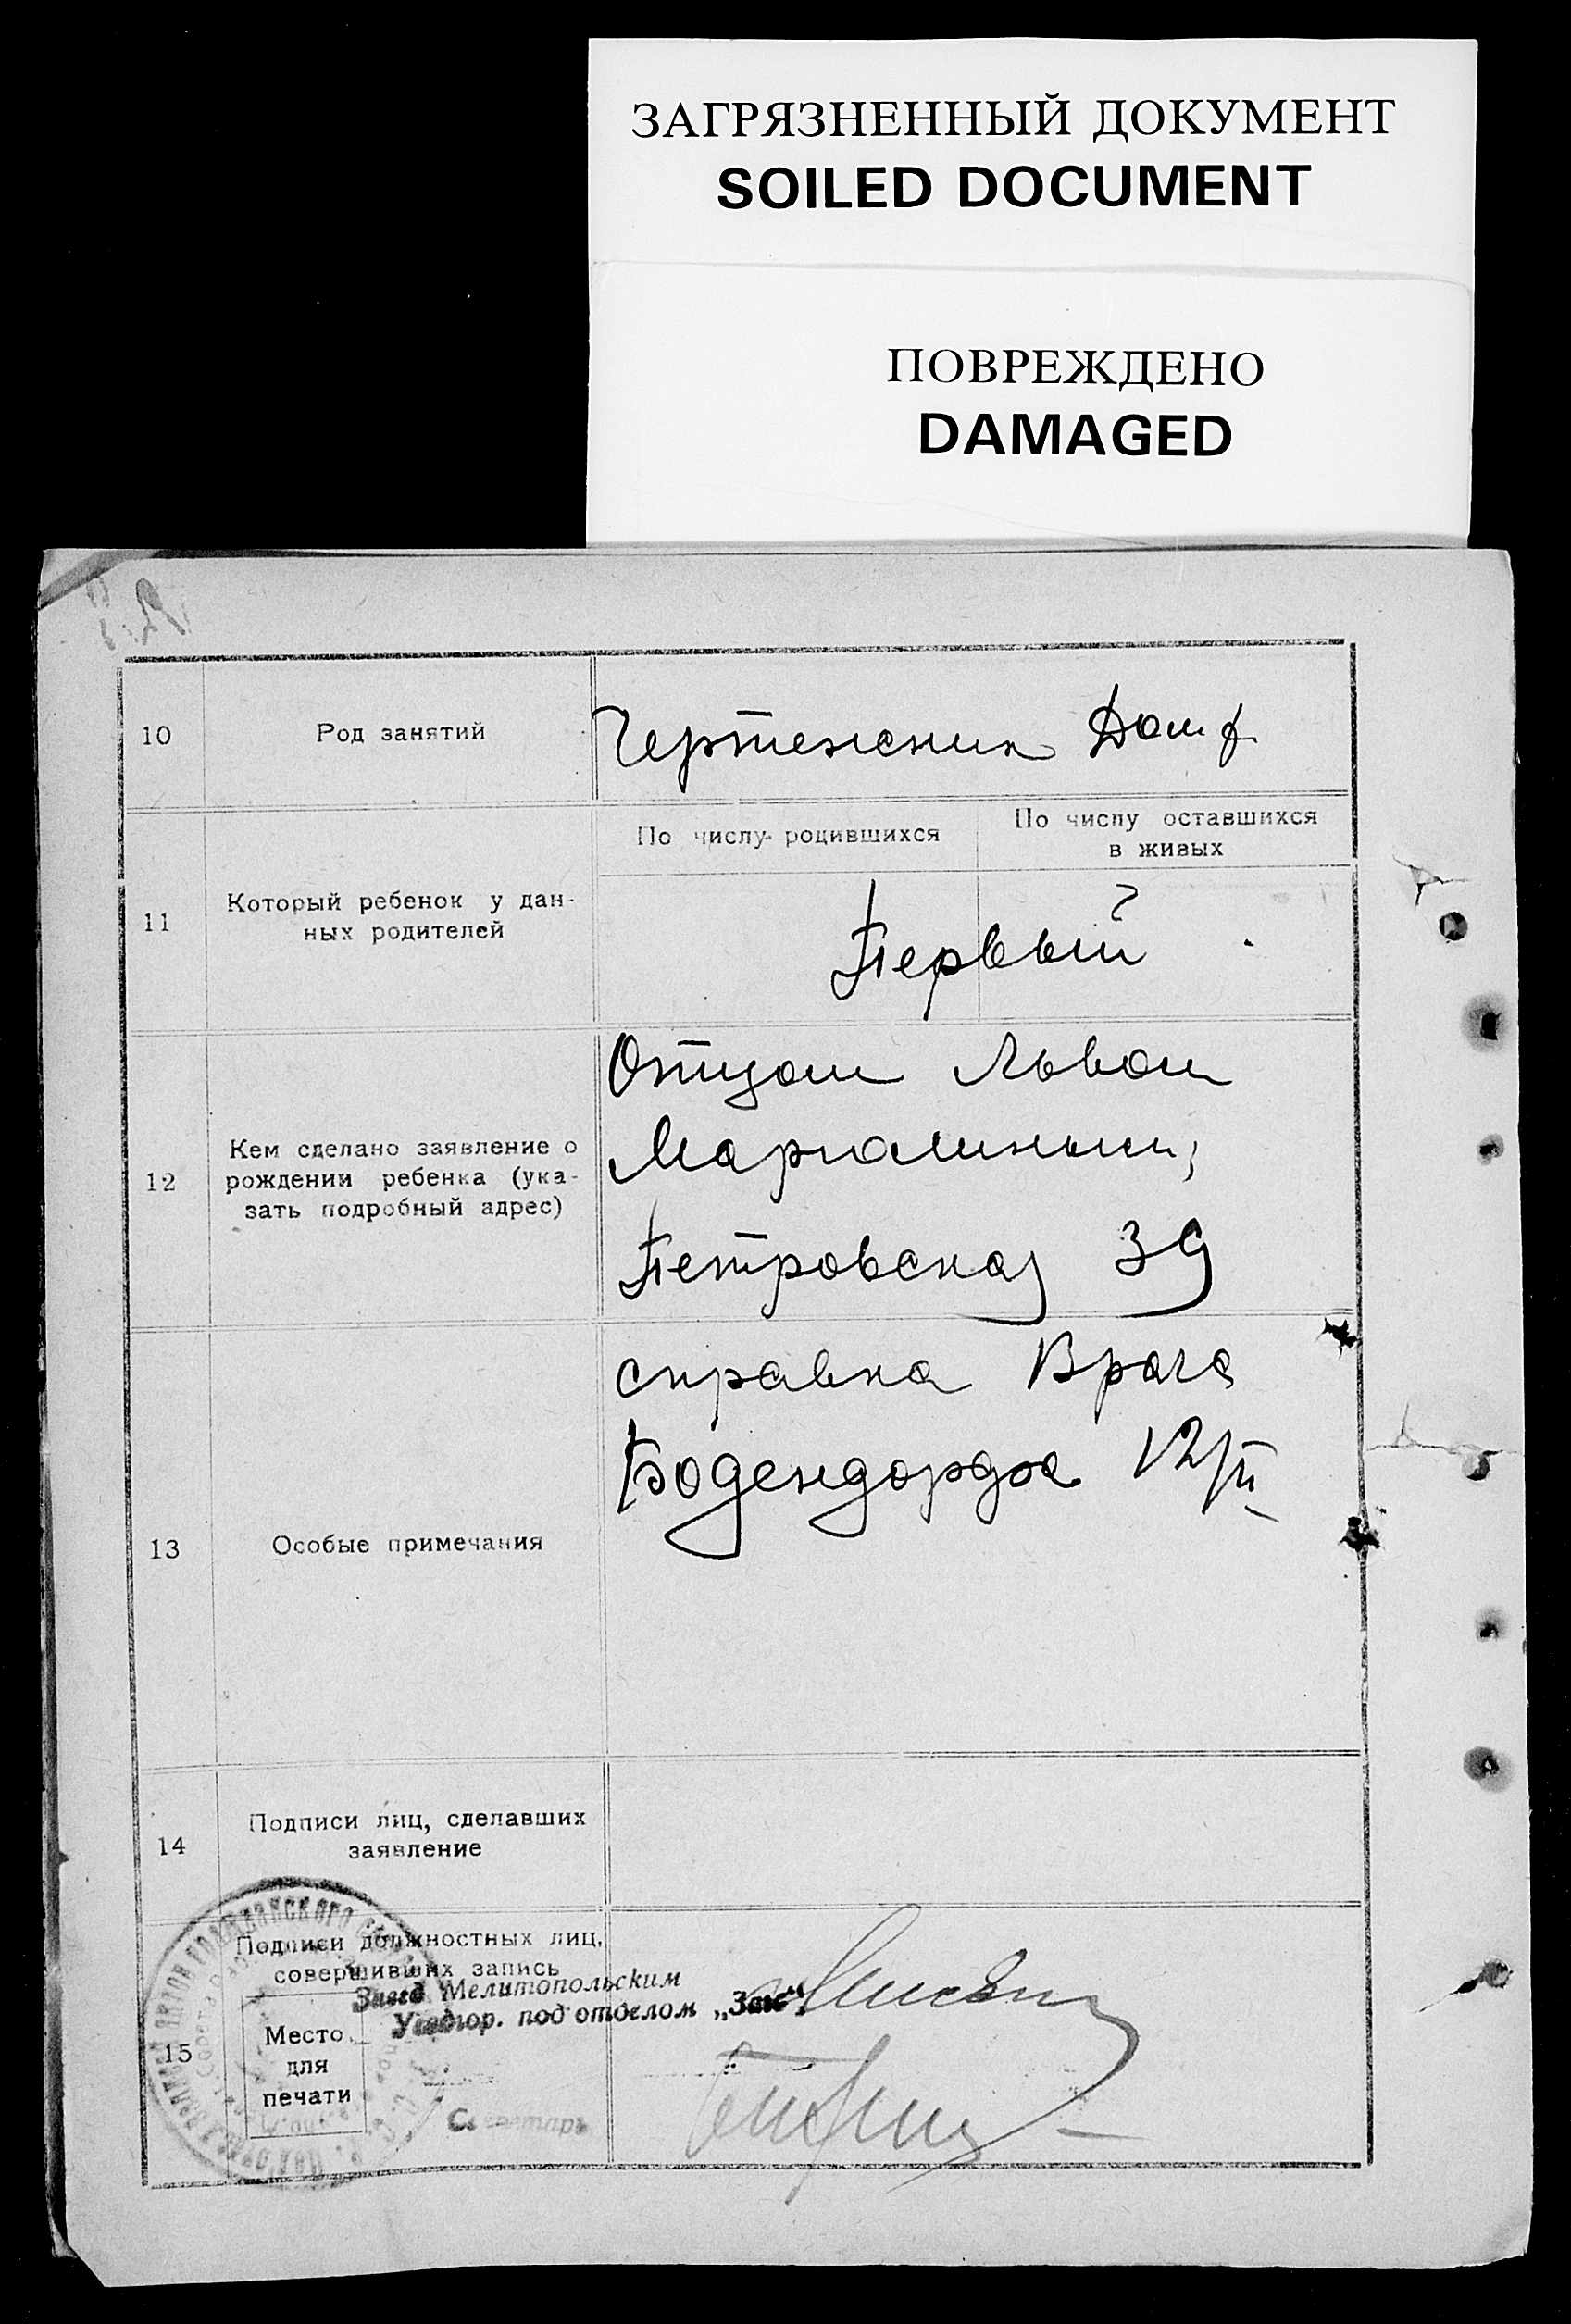 ЗАГРЯЗНЕННЫЙ ДОКУМЕНТ
SOILED DOCUMENT
ПОВРЕЖДЕНО
DAMAGED
10
Род занятий
Чертежник Дом.
По числу родившихся
По числу оставшихся
в живых
11
Который ребенок у дан-
ных родителей
Первый
12
Кем сделано заявление о
рождении ребенка (ука-
зать подробный адрес)
Отцом Львом
Петровская 39
13
Особые примечания
справка Врача
12/II
14
Подписи лиц, сделавших
заявление
15
Подписи должностных лиц,
совершивших запись
Завед Мелитопольским
под отделом „Загс“
Место
для
печати
Секретарь